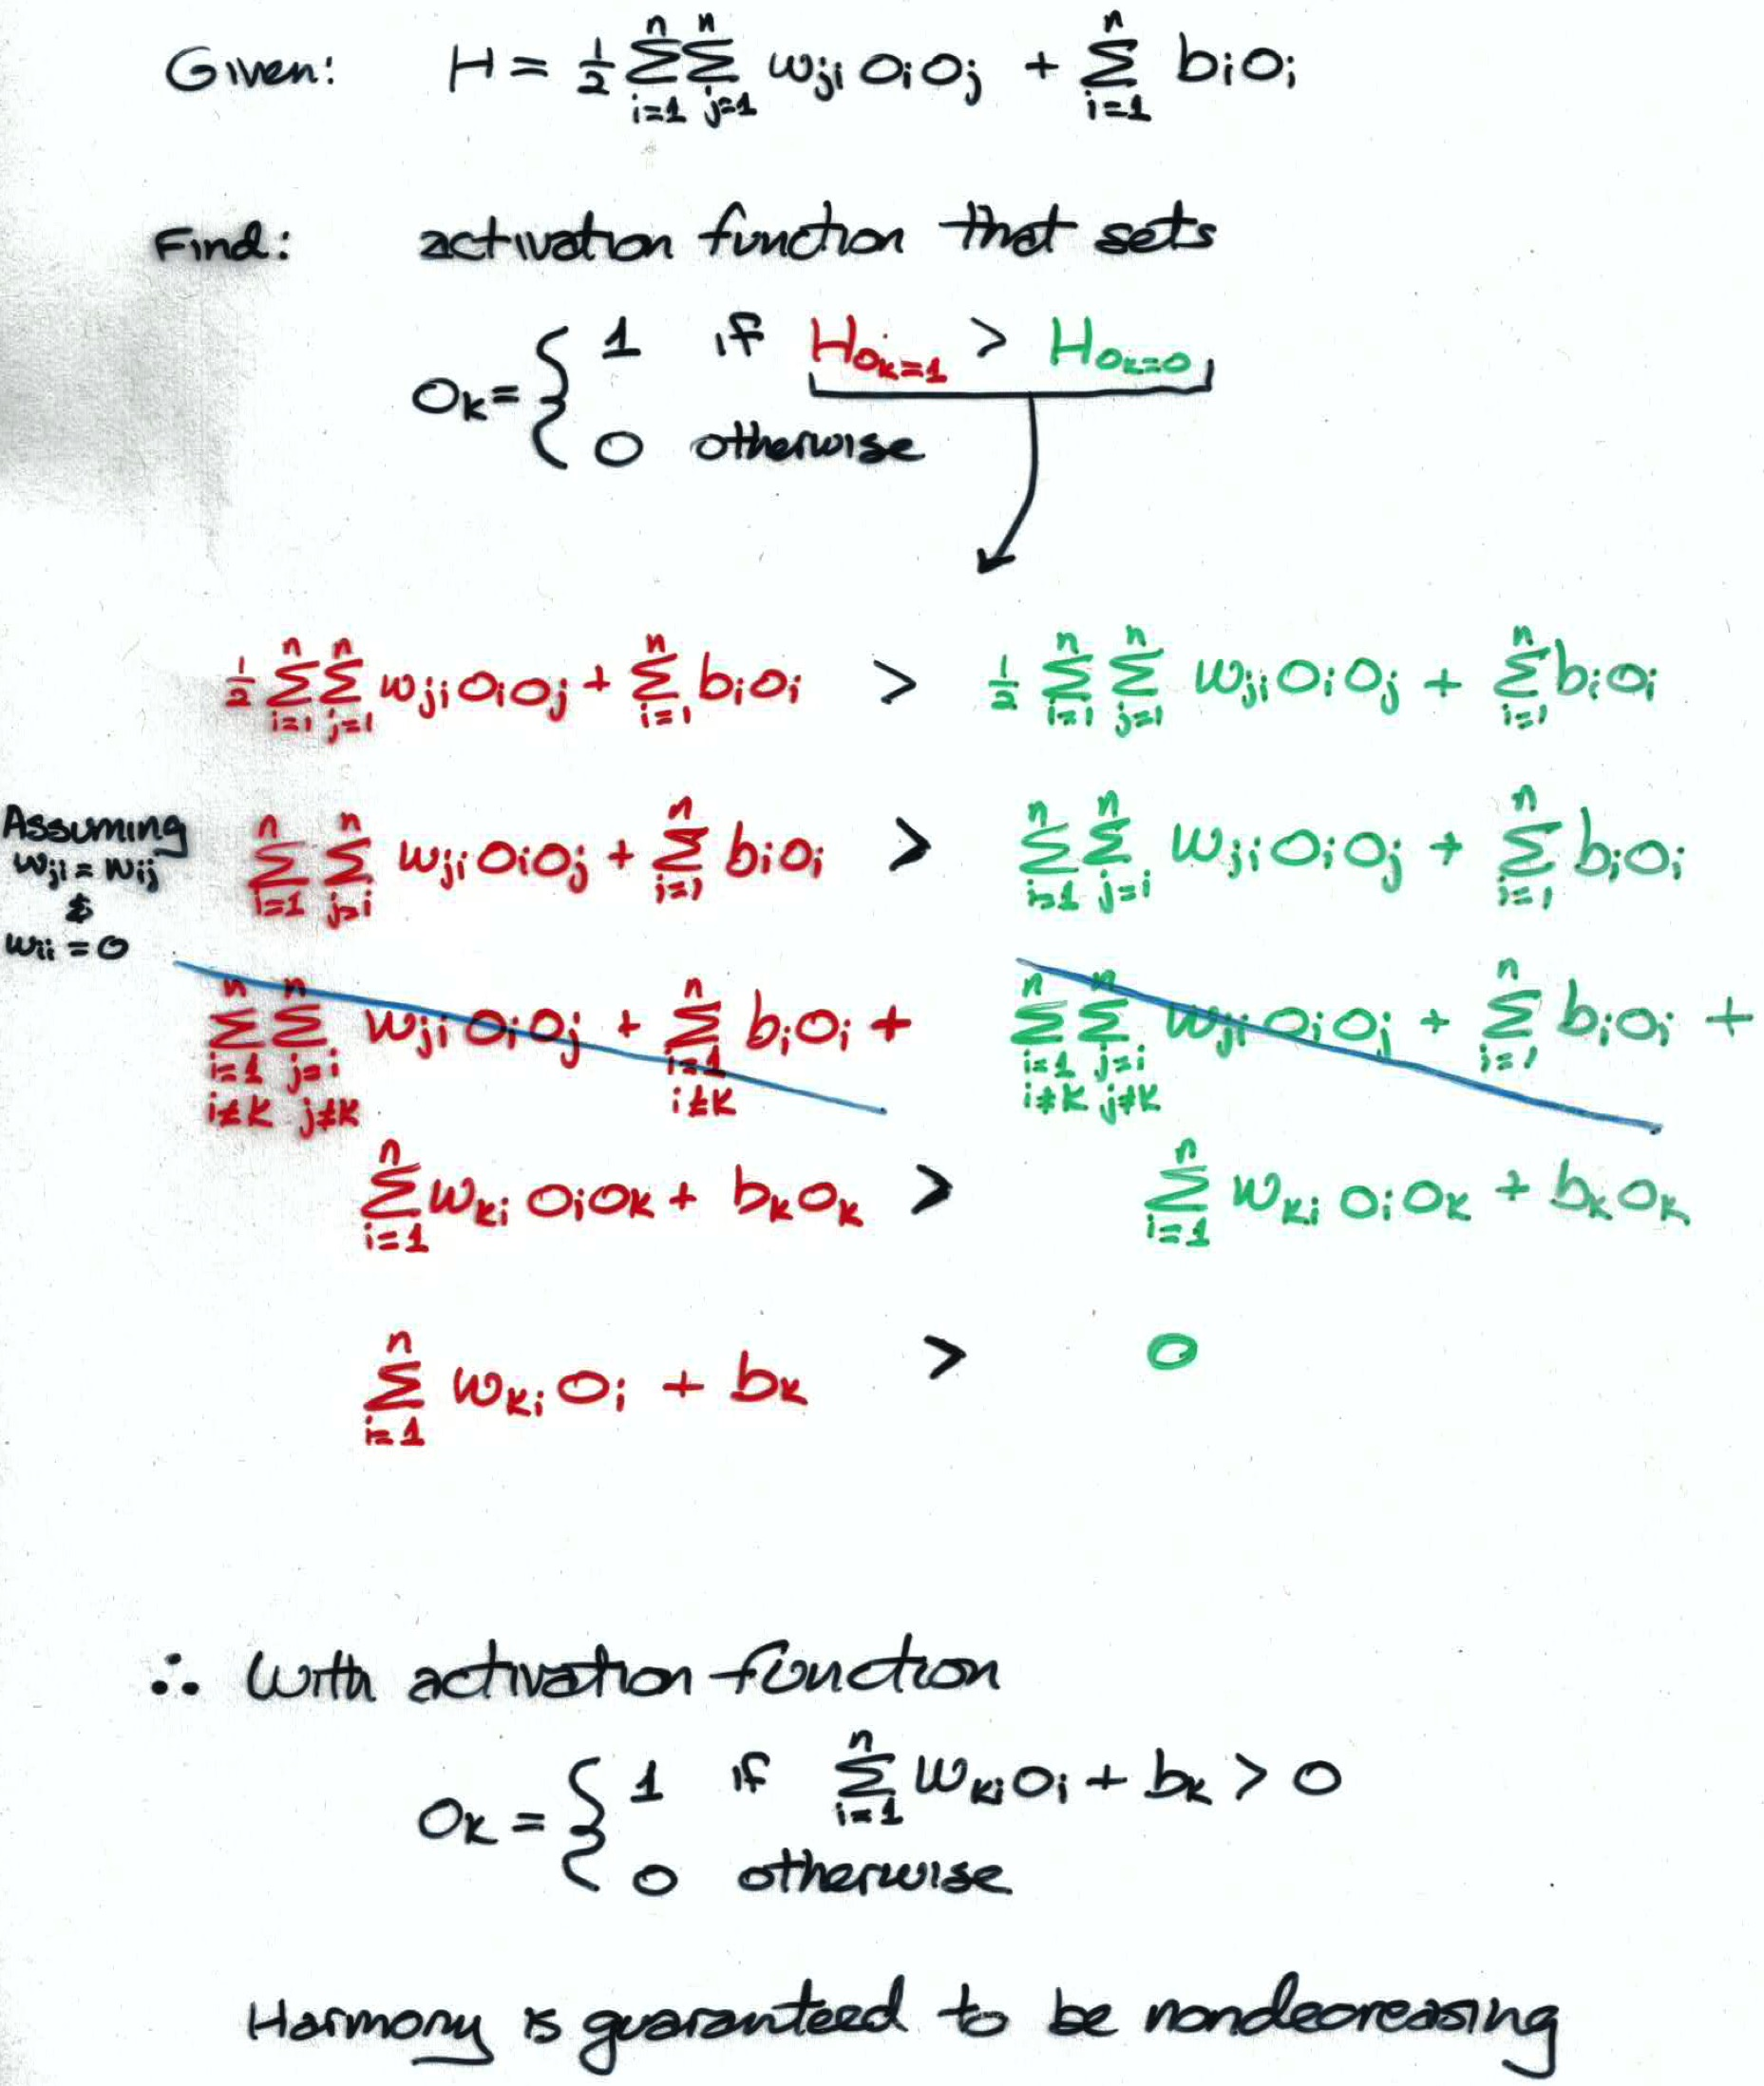 Given: H = ½ Σ_{i=1}^{n} Σ_{j=1}^{n} w_{ji} o_i o_j + Σ_{i=1}^{n} b_i o_i
Find: activation function that sets
o_k = { 1 if H_{o_k=1} > H_{o_k=0}
0 otherwise
½ Σ_{i=1}^{n} Σ_{j=1}^{n} w_{ji} o_i o_j + Σ_{i=1}^{n} b_i o_i > ½ Σ_{i=1}^{n} Σ_{j=1}^{n} w_{ji} o_i o_j + Σ_{i=1}^{n} b_i o_i
Assuming
w_{ji} = w_{ij}
&
w_{ii} = 0
Σ_{i=1}^{n} Σ_{j=i}^{n} w_{ji} o_i o_j + Σ_{i=1}^{n} b_i o_i > Σ_{i=1}^{n} Σ_{j=i}^{n} w_{ji} o_i o_j + Σ_{i=1}^{n} b_i o_i
Σ_{i=1, i≠k}^{n} Σ_{j=i, j≠k}^{n} w_{ji} o_i o_j + Σ_{i=1, i≠k}^{n} b_i o_i + Σ_{i=1, i≠k}^{n} Σ_{j=i, j≠k}^{n} w_{ji} o_i o_j + Σ_{i=1}^{n} b_i o_i +
Σ_{i=1}^{n} w_{ki} o_i o_k + b_k o_k > Σ_{i=1}^{n} w_{ki} o_i o_k + b_k o_k
Σ_{i=1}^{n} w_{ki} o_i + b_k > 0
∴ With activation function
o_k = { 1 if Σ_{i=1}^{n} w_{ki} o_i + b_k > 0
0 otherwise
Harmony is guaranteed to be nondecreasing